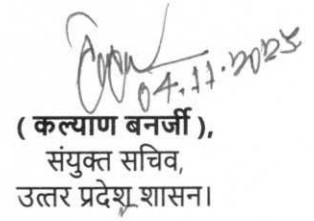 04.11.2025
( कल्याण बनर्जी ),
संयुक्त सचिव,
उत्तर प्रदेश शासन।